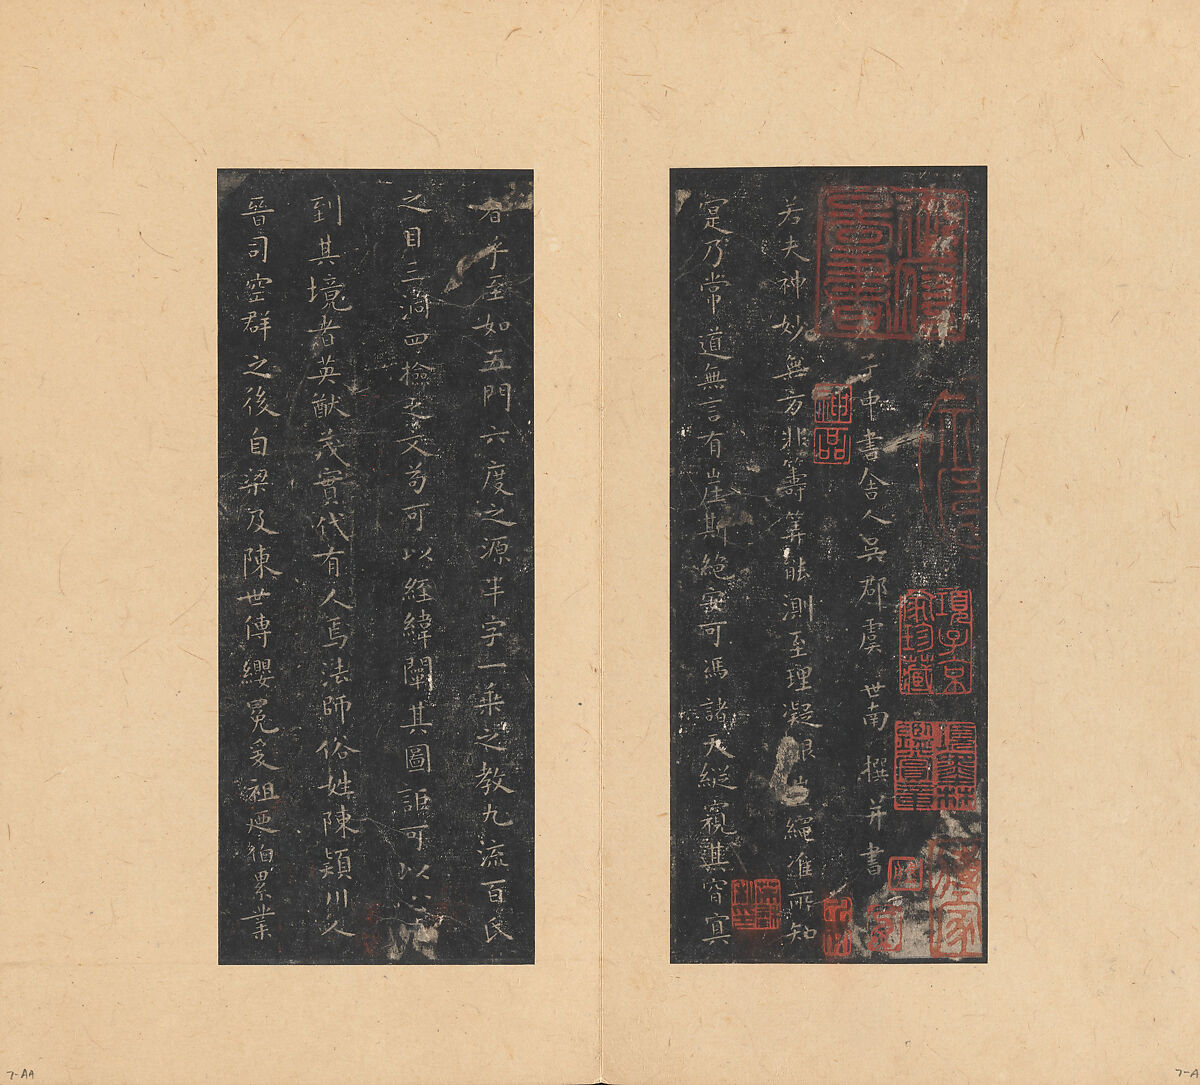 太子中書舍人吳郡虞世南撰并書
若夫神妙無方非籌筭能測至理凝邈豈繩准所知
寔乃常道無言有崖斯絕安可馮諸天縱窺其窅冥
者乎至如五門六度之源半字一乘之教九流百氏
之目三洞四檢之文苟可以經緯闡其圖詎可以心
到其境者英猷茂實代有人焉法師俗姓陳潁川人
晉司空群之後自梁及陳世傳纓冕爰祖逮伯累業
項子京家珍藏
項墨林鑑賞章
神品
7-AA
7-A